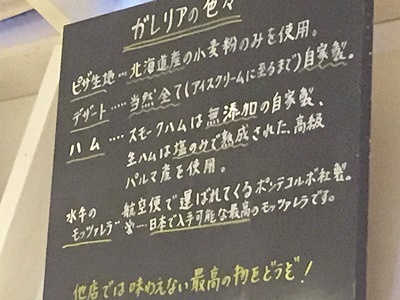 ガレリアの色々
ピザ生地…北海道産の小麦粉のみを使用。
デザート……当然全て(アイスクリームに至るまで)自家製。
ハム……スモークハムは無添加の自家製、
生ハムは塩のみで熟成された、高級
パルマ産を使用。
水牛の 航空便で運ばれてくるポンテコルボ社製。
モッツァレラ ※…日本で入手可能な最高のモッツァレラです。
他店では味わえない最高の物をどうぞ!